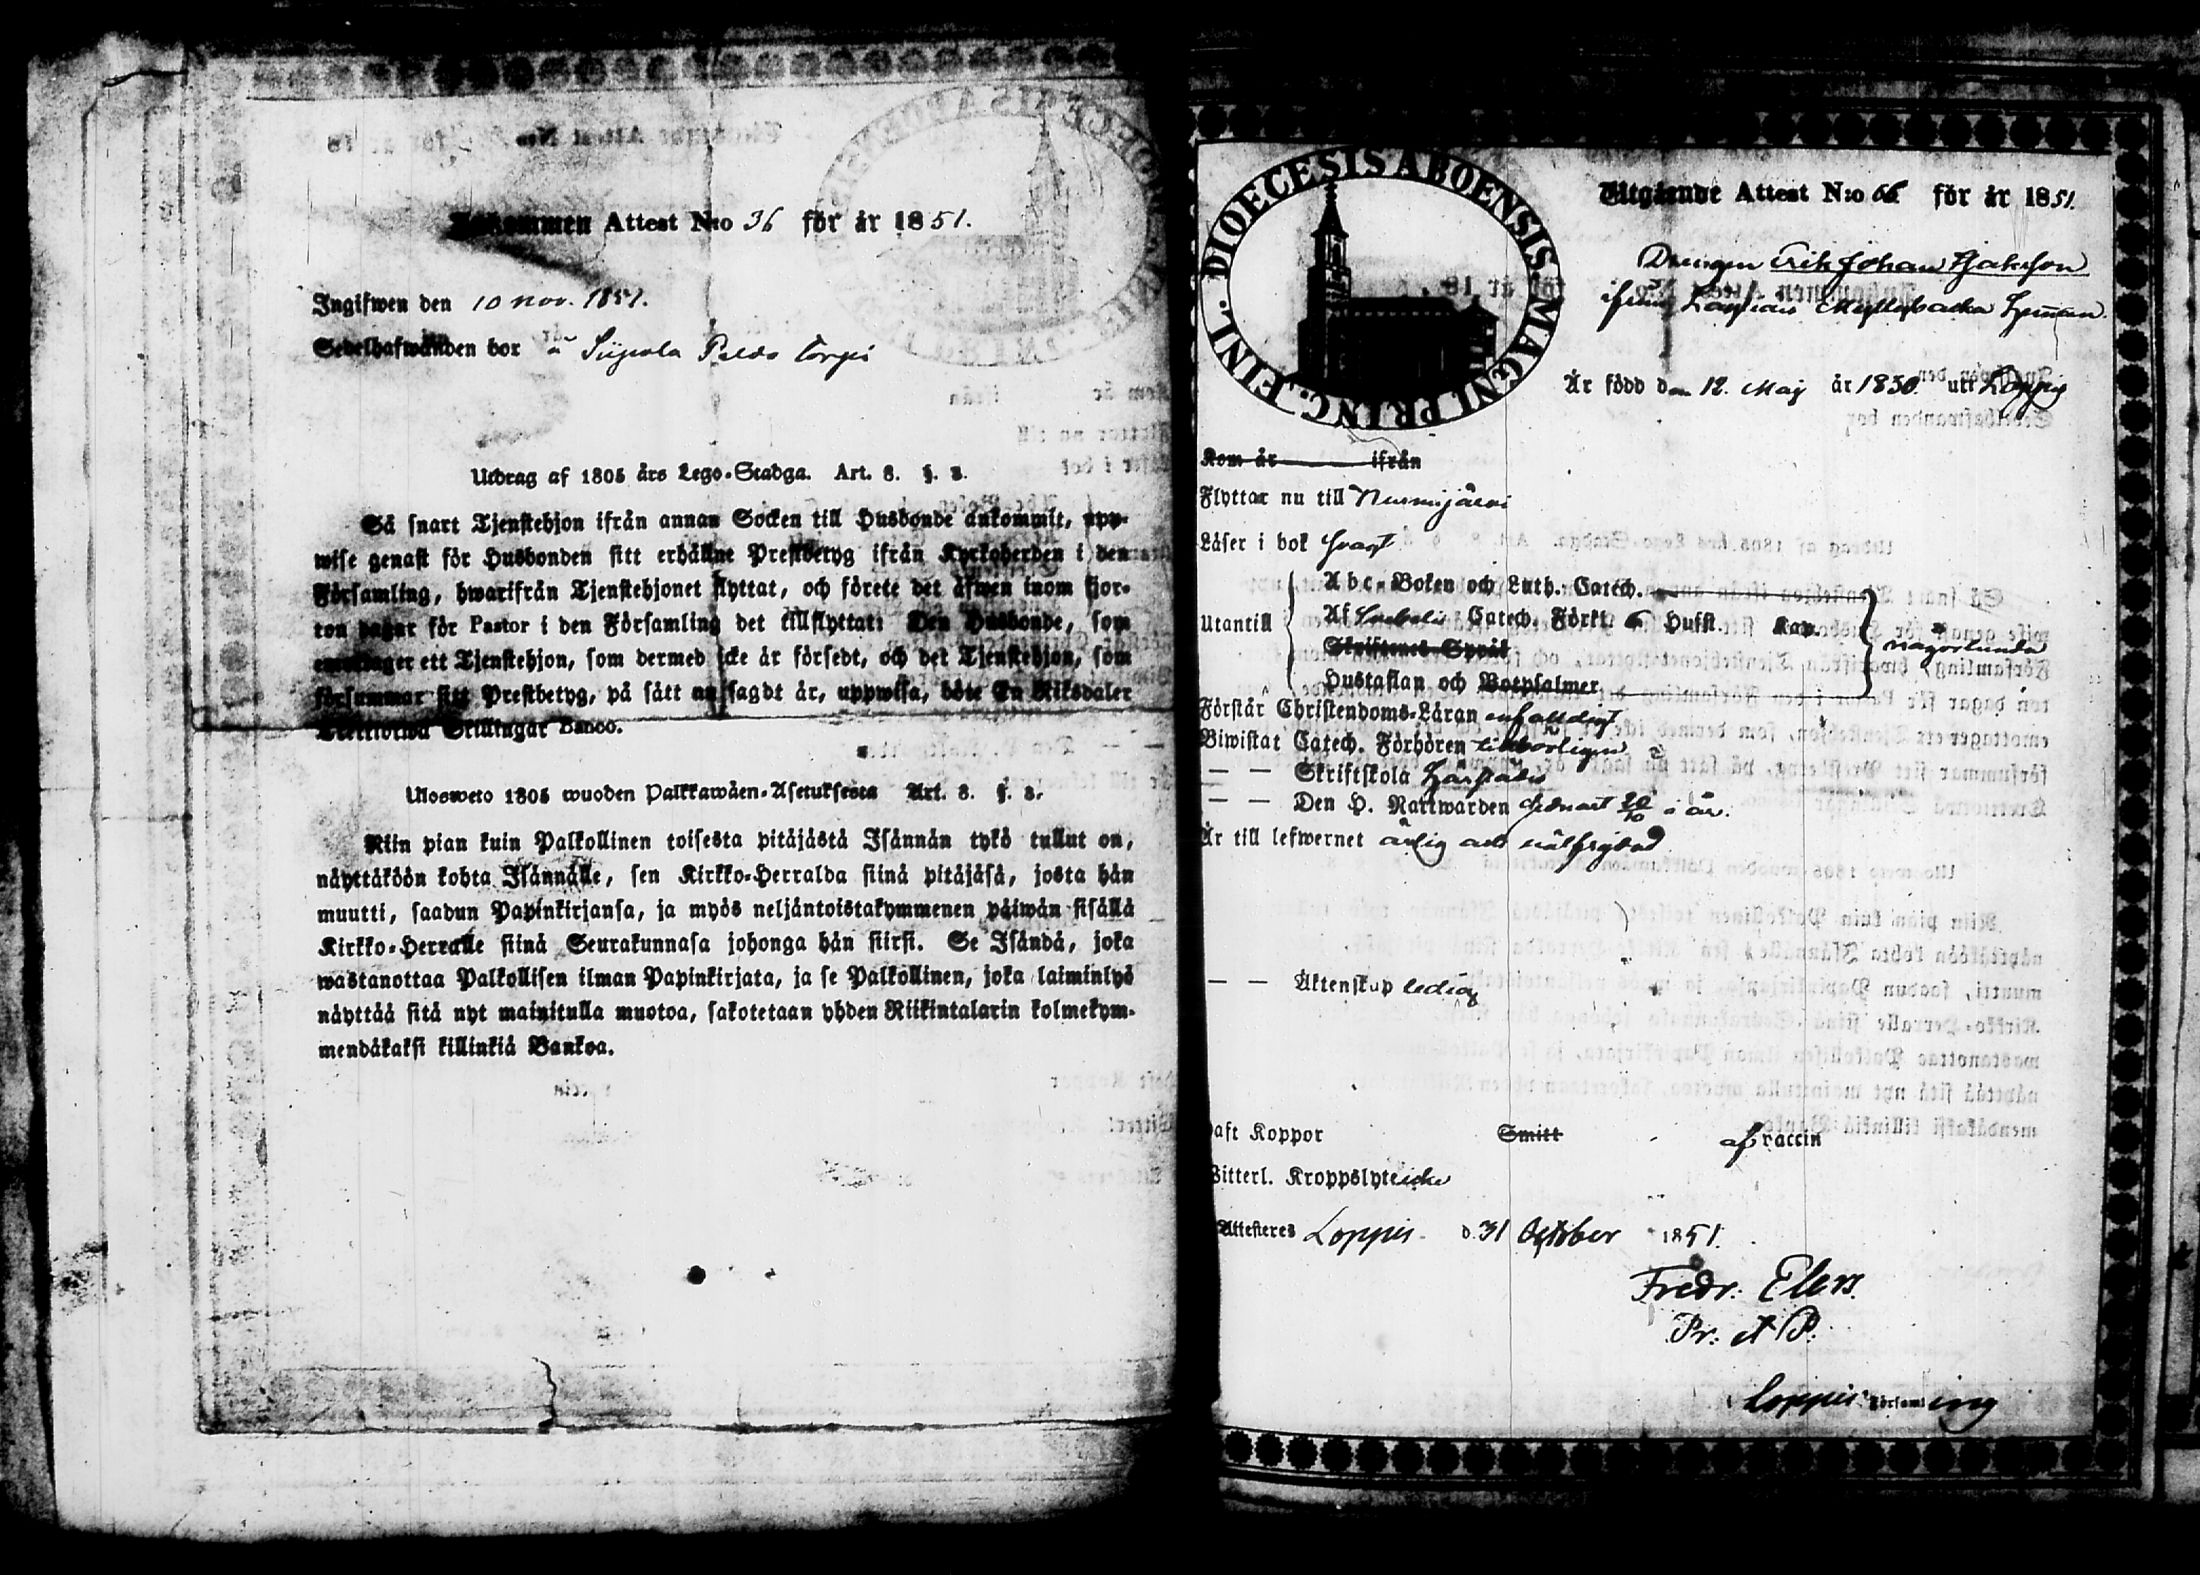 Inkommen Attest N:o 36 för år 1851.
Ingifwen den 10 nov. 1851.
Sedelhafwanden bor Siippola Peldo Torpi
Utdrag af 1805 års Lego-Stadga. Art. 8. §. 3.
Så snart Tjenstehjon ifrån annan Socken till Husbonde ankommit, upp-
wise genast för Husbonden sitt erhållne Prestbetyg ifrån Kyrkoherden i den
Församling, hwarifrån Tjenstehjonet flyttat, och förete det äfwen inom fjor-
ton dagar för Pastor i den Församling det tillflyttat: Den Husbonde, som
emottager ett Tjenstehjon, som dermed icke är försedt, och det Tjenstehjon, som
försummar sitt Prestbetyg, på sätt nu sagdt är, uppwisa, böte En Riksdaler
Trettiotwå Skillingar Banco.
Ulosweto 1805 wuoden Palkkawäen-Asetuksesta Art. 8. §. 3.
Niin pian kuin Palkollinen toisesta pitäjästä Isännän tykö tullut on,
näyttäköön kohta Isännälle, sen Kirkko-Herralda siinä pitäjäsä, josta hän
muutti, saadun Papinkirjansa, ja myös neljäntoistakymmenen päiwän sisällä
Kirkko-Herralle siinä Seurakunnasa johonga hän siirsi. Se Isändä, joka
wastanottaa Palkollisen ilman Papinkirjata, ja se Palkollinen, joka laiminlyö
näyttää sitä nyt mainitulla muotoa, sakotetaan yhden Riikintalarin kolmekym-
mendäkaksi killinkiä Bankoa.
DIOECESIS ABOENSIS. MAGNI PRINC. FINL.
Utgående Attest N:o 66 för år 1851.
Drengen Erik Johan Isaksson
ifrån Loppis
Är född den 12. Maij år 1830. utі Loppis
Kom år ifrån
Flyttar nu till Nurmijärvi
Läser i bok svagt
Abc-Boken och Luth. Catech.
Utantill Af Svebelii Catech. Förkl. 6 Hufst. Kap. någorlunda
Skriftenes Språk
Hustaflan och Botpsalmer
Förstår Christendoms-Läran enfaldigt
Biwistat Catech. Förhören
— — Skriftskola härstädes
— — Den H. Nattwarden sednast 20/10 i år.
Är till lefwernet ärlig och välfrejdad
— — Äktenskap ledig
Haft Koppor Smitt af vaccin
Witterl. Kroppslyte icke
Attesteres Loppis d. 31 October 1851.
Fredr. Elers.
Pr: et P.
Loppis Församling